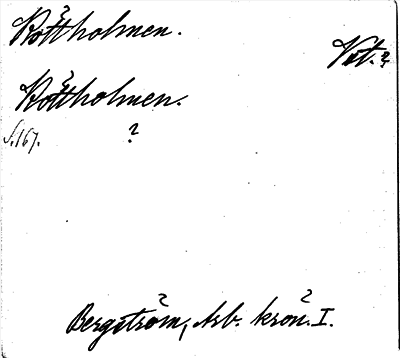 Köttholmen.
Vst.
Köttholmen.
S. 167. ?
Bergström, Arb. krön. I.